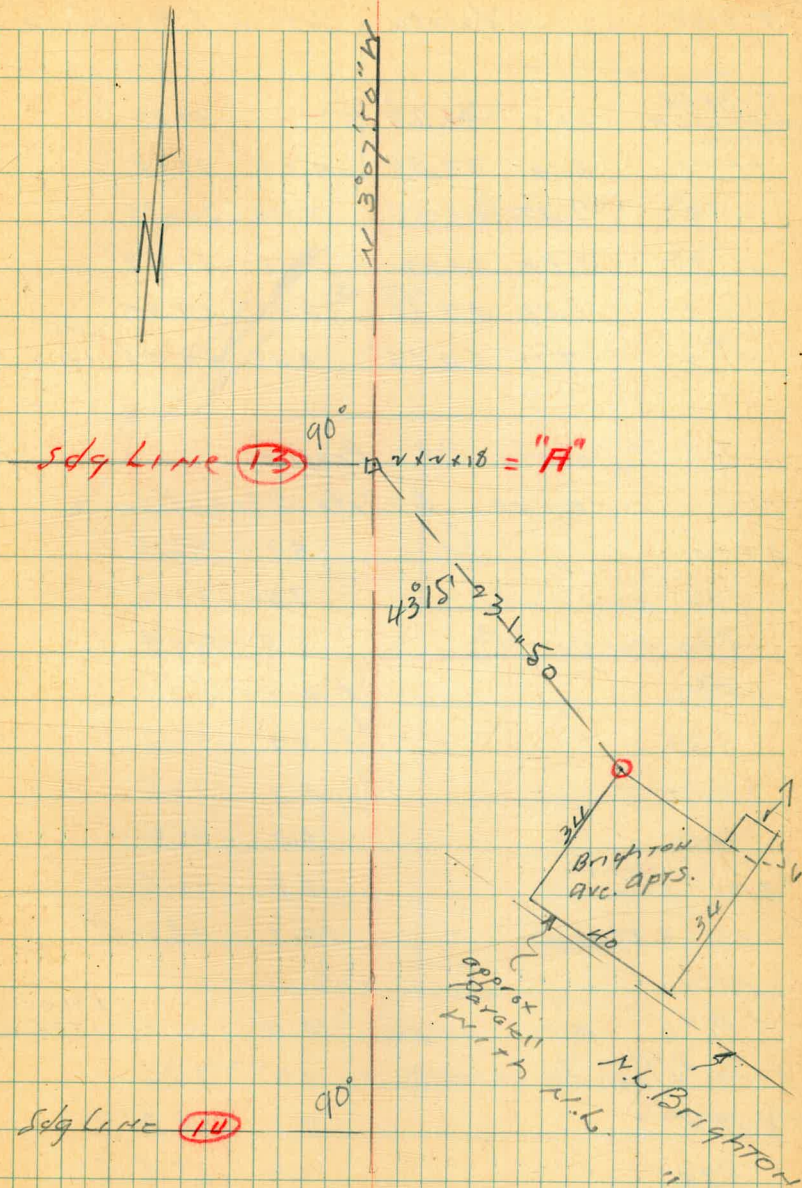 N 3°07'50" W
N
90°
Sdg Line 13
2x2x18 = "A"
43°15'
231.50
34
Brighton
ave. apts.
7
6
34
40
approx.
parallel
with N.L.
N.L. Brighton
"
90°
Sdg Line 14